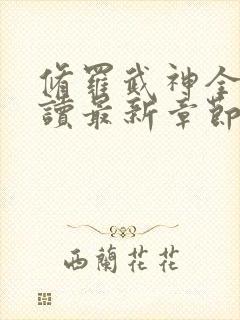 脩羅武神全
讀最新章節
西蘭花花